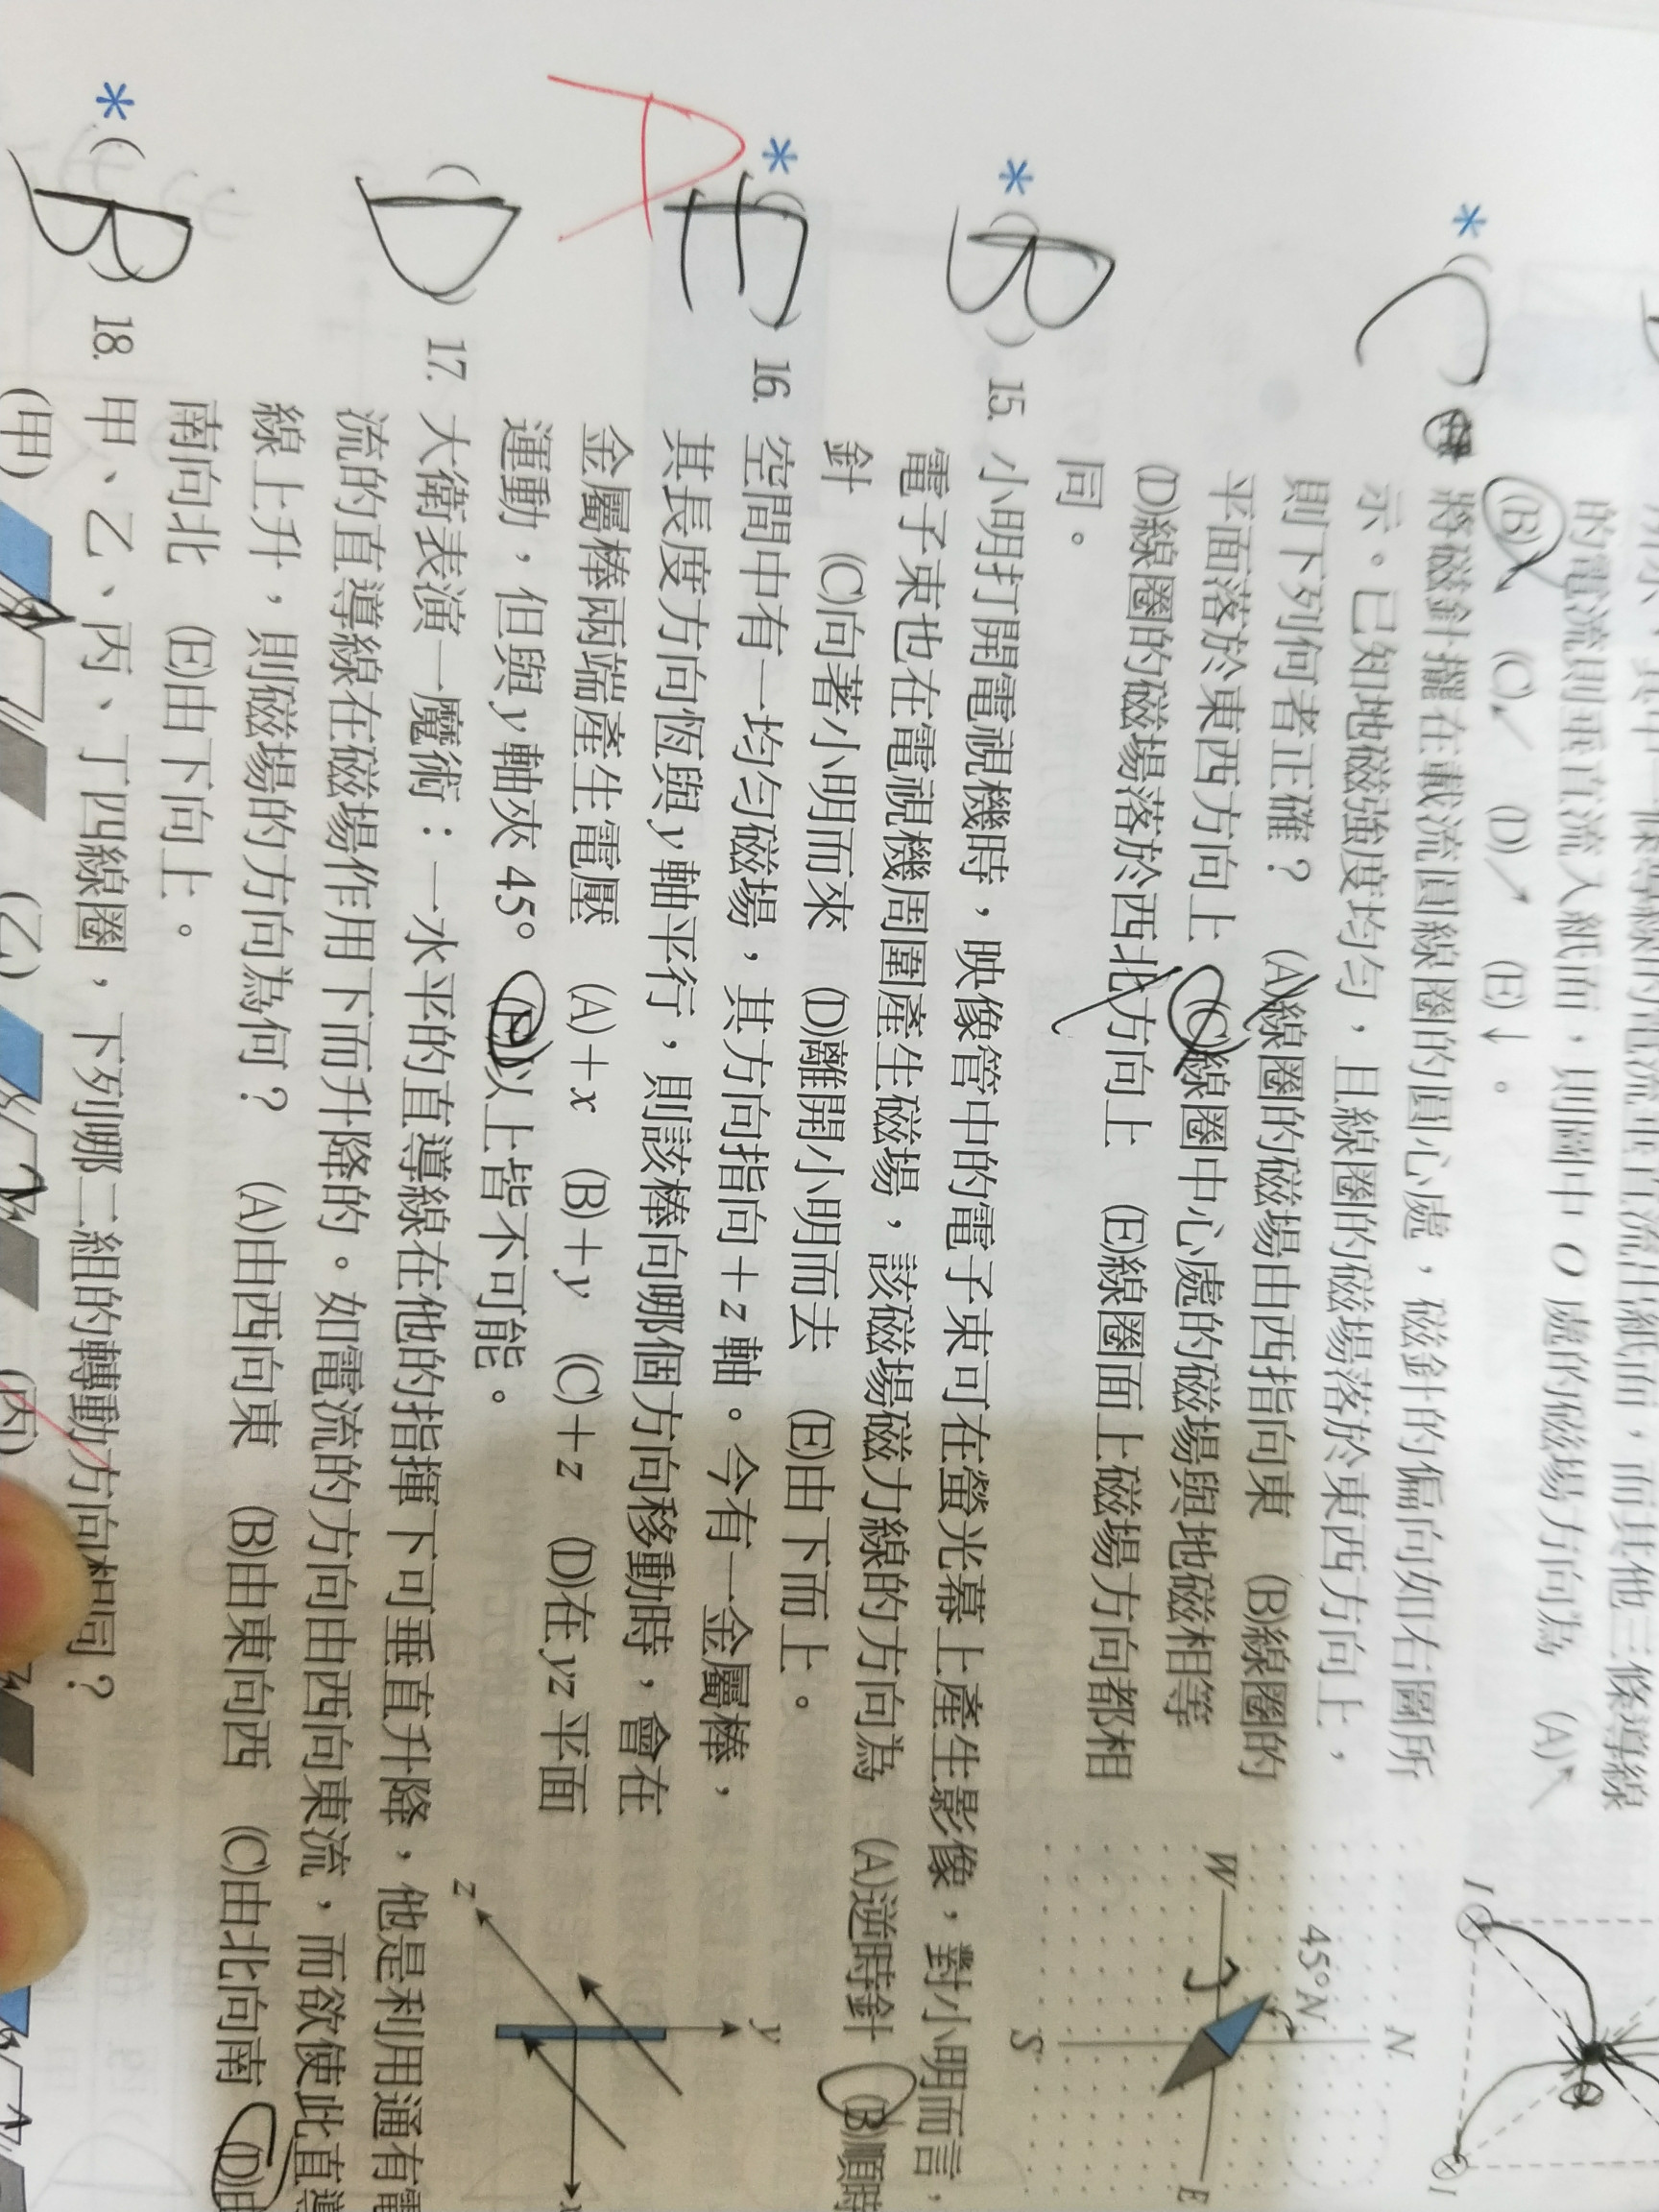 的電流則垂直流入紙面，則圖中 O 處的磁場方向為 (A)↖
(B)↘ (C)↙ (D)↗ (E)↓。
* ( C ) 將磁針擺在載流圓線圈的圓心處，磁針的偏向如右圖所
示。已知地磁強度均勻，且線圈的磁場落於東西方向上，
則下列何者正確？ (A)線圈的磁場由西指向東 (B)線圈的
平面落於東西方向上 (C)線圈中心處的磁場與地磁相等
(D)線圈的磁場落於西北方向上 (E)線圈面上磁場方向都相
同。
N
45°
N
W
E
S
I
O
I
* ( B ) 15. 小明打開電視機時，映像管中的電子束可在螢光幕上產生影像，對小明而言，
電子束也在電視機周圍產生磁場，該磁場磁力線的方向為 (A)逆時針 (B)順時
針 (C)向著小明而來 (D)離開小明而去 (E)由下而上。
A
* ( E ) 16. 空間中有一均勻磁場，其方向指向＋z 軸。今有一金屬棒，
其長度方向恆與 y 軸平行，則該棒向哪個方向移動時，會在
金屬棒兩端產生電壓 (A)＋x (B)＋y (C)＋z (D)在 yz 平面
運動，但與 y 軸夾 45° (E)以上皆不可能。
y
z
x
( D ) 17. 大衛表演一魔術：一水平的直導線在他的指揮下可垂直升降，他是利用通有電
流的直導線在磁場作用下而升降的。如電流的方向由西向東流，而欲使此直導
線上升，則磁場的方向為何？ (A)由西向東 (B)由東向西 (C)由北向南 (D)由
南向北 (E)由下向上。
* ( B ) 18. 甲、乙、丙、丁四線圈，下列哪二組的轉動方向相同？
(甲) (乙) (丙)